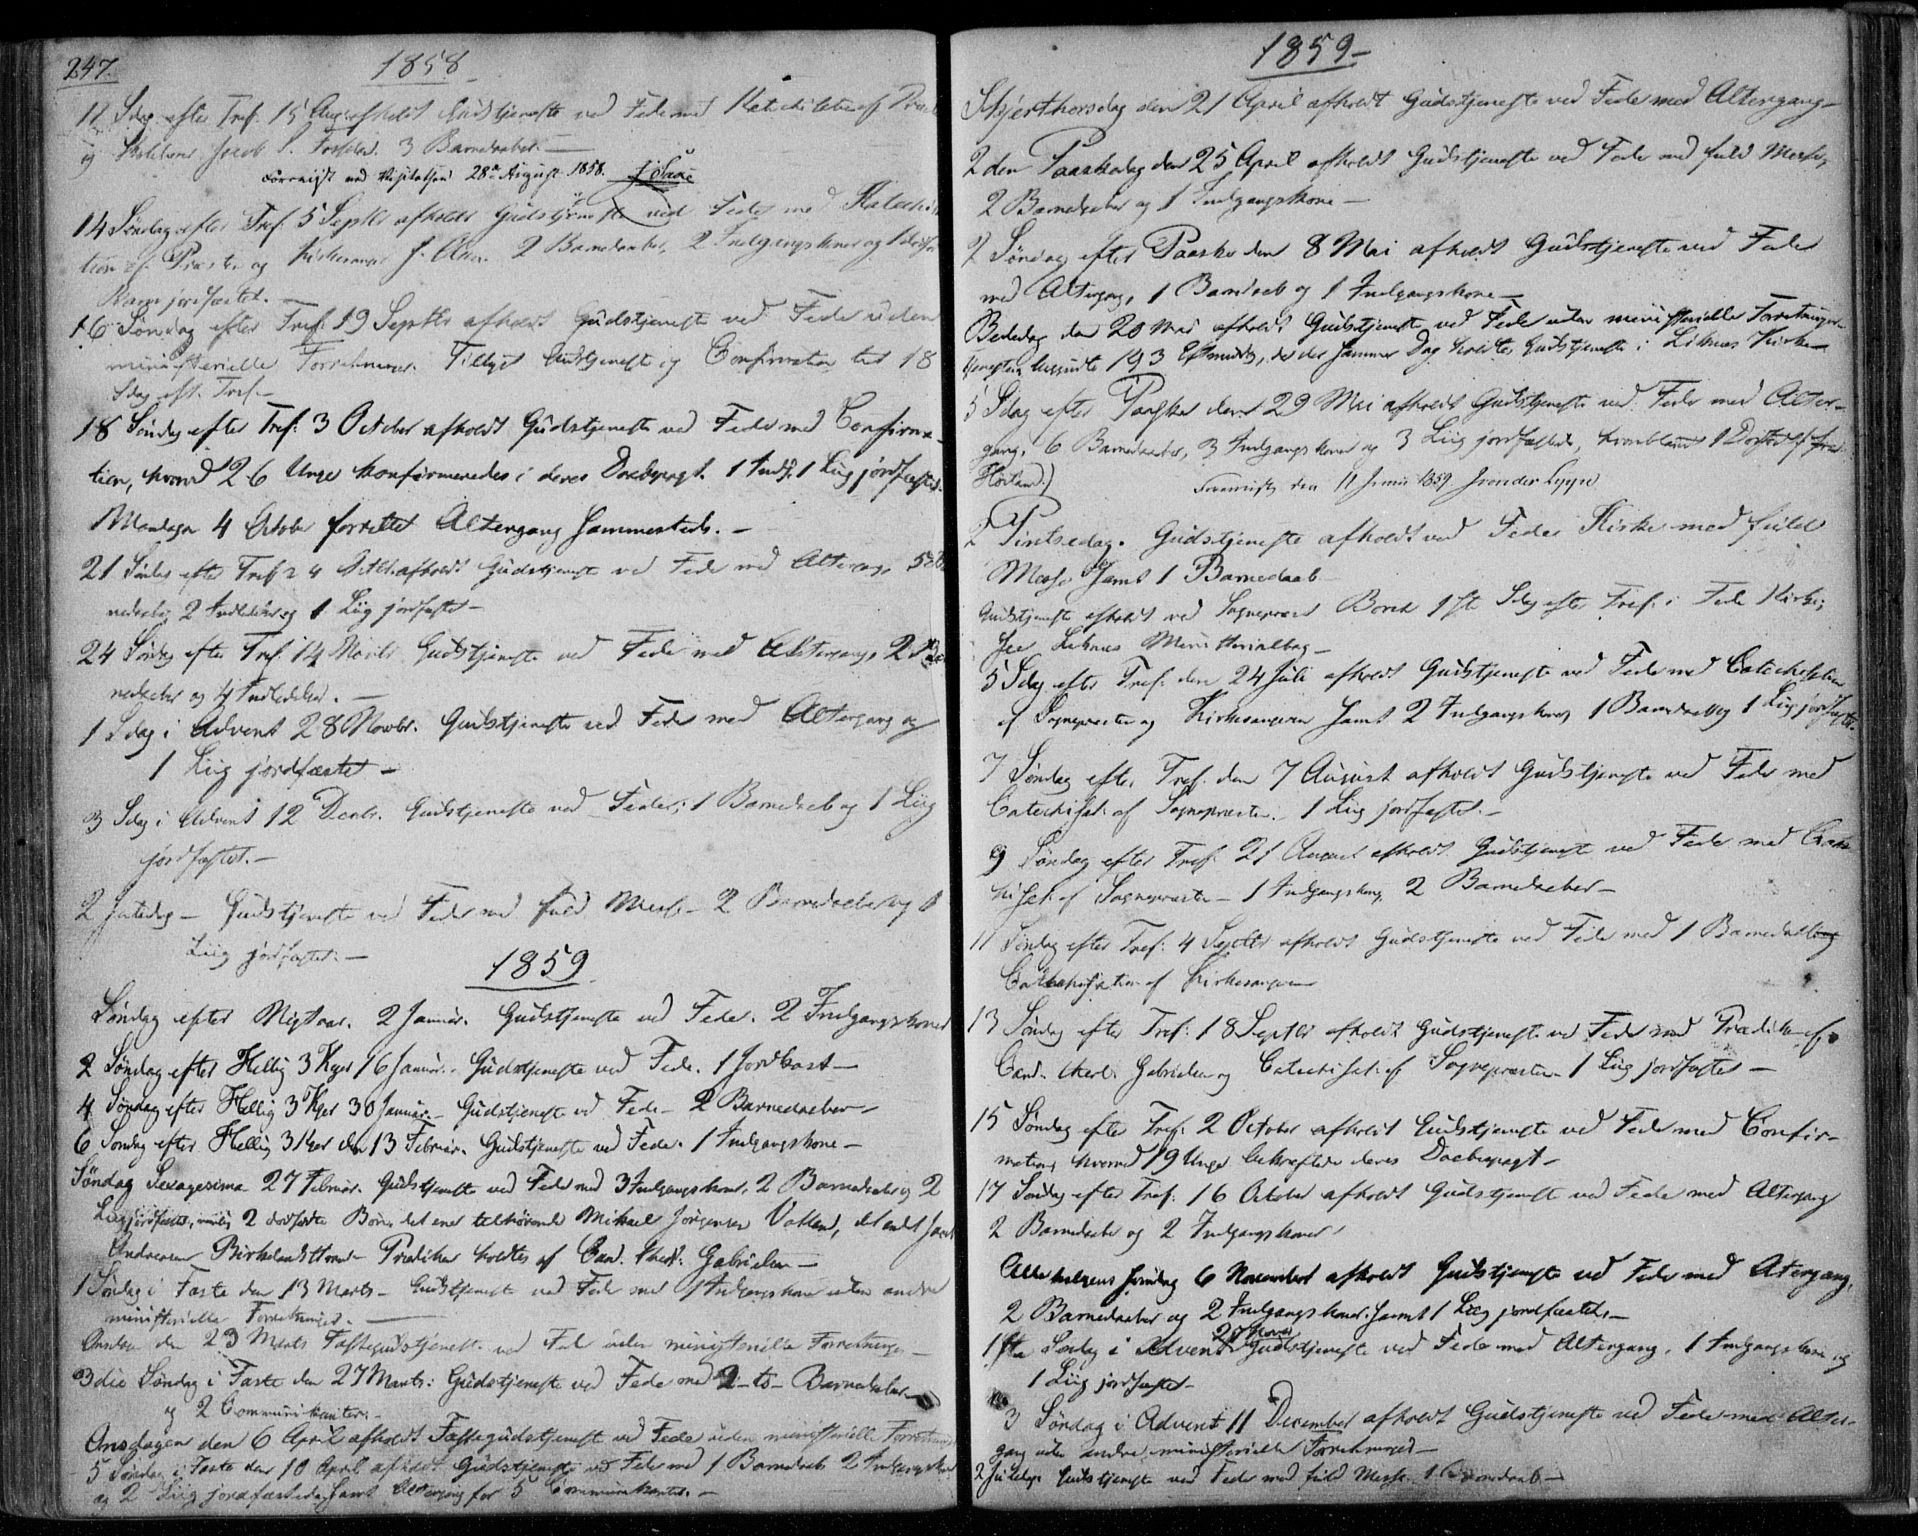 247.
1858
Sdag efter Tref. 15 Aug. afholdt Gudstjeneste ved Fede med Katechisation af
og Jacob 3 Barnedaaber. —
Foreviist ved Visitatsen 28de August 1858.
14 Søndag efter Tref. 5 Septbr afholdt Gudstjeneste ved Fede med Katechisa-
tion af Præsten og Kirkesanger 2 Barnedaaber, 2 Indgangskoner og 1
Barn jordfæstet. —
16 Søndag efter Tref. 19 Septbr afholdt Gudstjeneste ved Fede uden
ministerielle Forretninger. Tillyst Gudstjeneste og Confirmation til 18
Sdag eft. Tref. —
18 Søndag efter Tref: 3 October afholdt Gudstjeneste ved Fede med Confirma-
tion, hvorved 26 Unge konfirmeredes i deres Daabspagt. 1 Indg. 1 Liig jordfæstet.
Mandagen 4 Octobr forrettet Altergang sammesteds. —
21 Søndag efter Tref. 24 Octbr afholdt Gudstjeneste ved Fede med Altergang, 5 Bar-
nedaab, 2 Indledelser og 1 Liig jordfæstet —
24 Søndag efter Tref. 14 Novbr Gudstjeneste ved Fede med Altergang, 2 Bar-
nedaaber og 4 Indledelser. —
1 Sdag i Advent 28 Novbr. Gudstjeneste ved Fede med Altergang og
1 Liig jordfæstet —
3 Sdag i Advent 12 Decbr. Gudstjeneste ved Fede; 1 Barnedaab og 1 Liig
jordfæstet. —
2 Juledag — Gudstjeneste ved Fede med fuld Messe — 2 Barnedaaber og
Liig jordfæstet. —
1859
Søndag efter Nytaar. 2 Januar. Gudstjeneste ved Fede. 2 Indgangskoner
2 Søndag efter Hellig 3 Kger 16 Januar. Gudstjeneste ved Fede. 1 Jordkast —
4 Søndag efter Hellig 3 Kger 30 Januar — Gudstjeneste ved Fede — 2 Barnedaaber —
6 Søndag efter Hellig 3 Kger den 13 Februar. Gudstjeneste ved Fede. 1 Indgangskone —
Søndag Sexagesima 27 Februar. Gudstjeneste ved Fede med 3 Indgangskoner, 2 Barnedaaber og 2
Liig jordfæstet, nemlig 2 dødfødte Børn, det ene tilhørende Mikael Jørgensen Vatland, det andet
Andreasen Birkelands Prædiken holdtes af Cand. theol. Gabrielsen —
1 Søndag i Faste den 13 Marts — Gudstjeneste ved Fede med 1 Indgangskone uden andre
ministerielle Forretninger. —
Onsdag den 23 Marts Fastegudstjeneste ved Fede uden ministerielle Forretninger —
3die Søndag i Faste den 27 Marts: Gudstjeneste ved Fede med 2 — to — Barnedaaber
og 2 Communikanter. —
Onsdagen den 6 April afholdt Fastegudstjeneste ved Fede uden ministerielle Forretninger
5 Søndag i Faste den 10 April afholdt Gudstjeneste ved Fede med 1 Barnedaab 2 Indgangskoner
og 2 Liig jordfæstede samt Altergang for 5 Communikanter. —
1859 —
Skjærthorsdag den 21 April afholdt Gudstjeneste ved Fede med Altergang —
2den Paaskedag den 25 April afholdt Gudstjeneste ved Fede med fuld Messe,
2 Barnedaaber og 1 Indgangskone —
2 Søndag efter Paaske den 8 Mai afholdt Gudstjeneste ved Fede
med Altergang, 1 Barnedaab og 1 Indgangskone —
Bededag den 20 Mai afholdt Gudstjeneste ved Fede uden ministerielle Forretninger.
tjenesten begyndte Eftermiddag, da der samme Dag holdtes Gudstjeneste i Liknes Kirke —
5 Sdag efter Paaske den 29 Mai afholdt Gudstjeneste ved Fede med Alter-
gang, 6 Barnedaaber, 3 Indgangskoner og 3 Liig jordfæstet, hvoriblandt 1 Dødfødt fra
Foreviist den 11 Junii 1859
2 Pintsedag. Gudstjeneste afholdt ved Fedes Kirke med fuld
Messe samt 1 Barnedaab
Gudstjeneste afholdt ved Sognepræst 1ste Sdag efter Tref. i Fede Kirke;
see Liknes Ministerialbog —
5 Sdag efter Tref. den 24 Juli afholdt Gudstjeneste ved Fede med Catechisation
af Sognepræsten og Kirkesangeren samt 2 Indgangskoner, 1 Barnedaab og 1 Liig jordfæstet.
7 Søndag efter Tref. den 7 August afholdt Gudstjeneste ved Fede med
Catechisat. af Sognepræsten. 1 Liig jordfæstet. —
9 Søndag efter Tref. 21 August afholdt Gudstjeneste ved Fede med Cate-
chisat. af Sognepræsten — 1 Indgangskone, 2 Barnedaaber —
11 Søndag efter Tref. 4 Septbr afholdt Gudstjeneste ved Fede med 1 Barnedaab og
Catechisation af Kirkesangeren
13 Søndag efter Tref. 18 Septbr afholdt Gudstjeneste ved Fede med Prædiken af
Cand. theol. Gabrielsen og Catechisat. af Sognepræsten — 1 Liig jordfæstet —
15 Søndag efter Tref. 2 October afholdt Gudstjeneste ved Fede med Confir-
mation, hvorved 19 Unge bekræftede deres Daabspagt —
17 Søndag efter Tref. 16 October afholdt Gudstjeneste ved Fede med Altergang
2 Barnedaaber og 2 Indgangskoner
Alle helgens Søndag 6 November afholdt Gudstjeneste ved Fede med Altergang,
2 Barnedaaber og 2 Indgangskoner samt 1 Liig jordfæstet. —
27 Novbr
1ste Søndag i Advent Gudstjeneste ved Fede med Altergang, 1 Indgangskone og
1 Liig jordfæstet —
3 Søndag i Advent 11 December afholdt Gudstjeneste ved Fede med Alter-
gang uden andre ministerielle Forretninger —
2 Juledag Gudstjeneste ved Fede med fuld Messe. 1 Barnedaab —